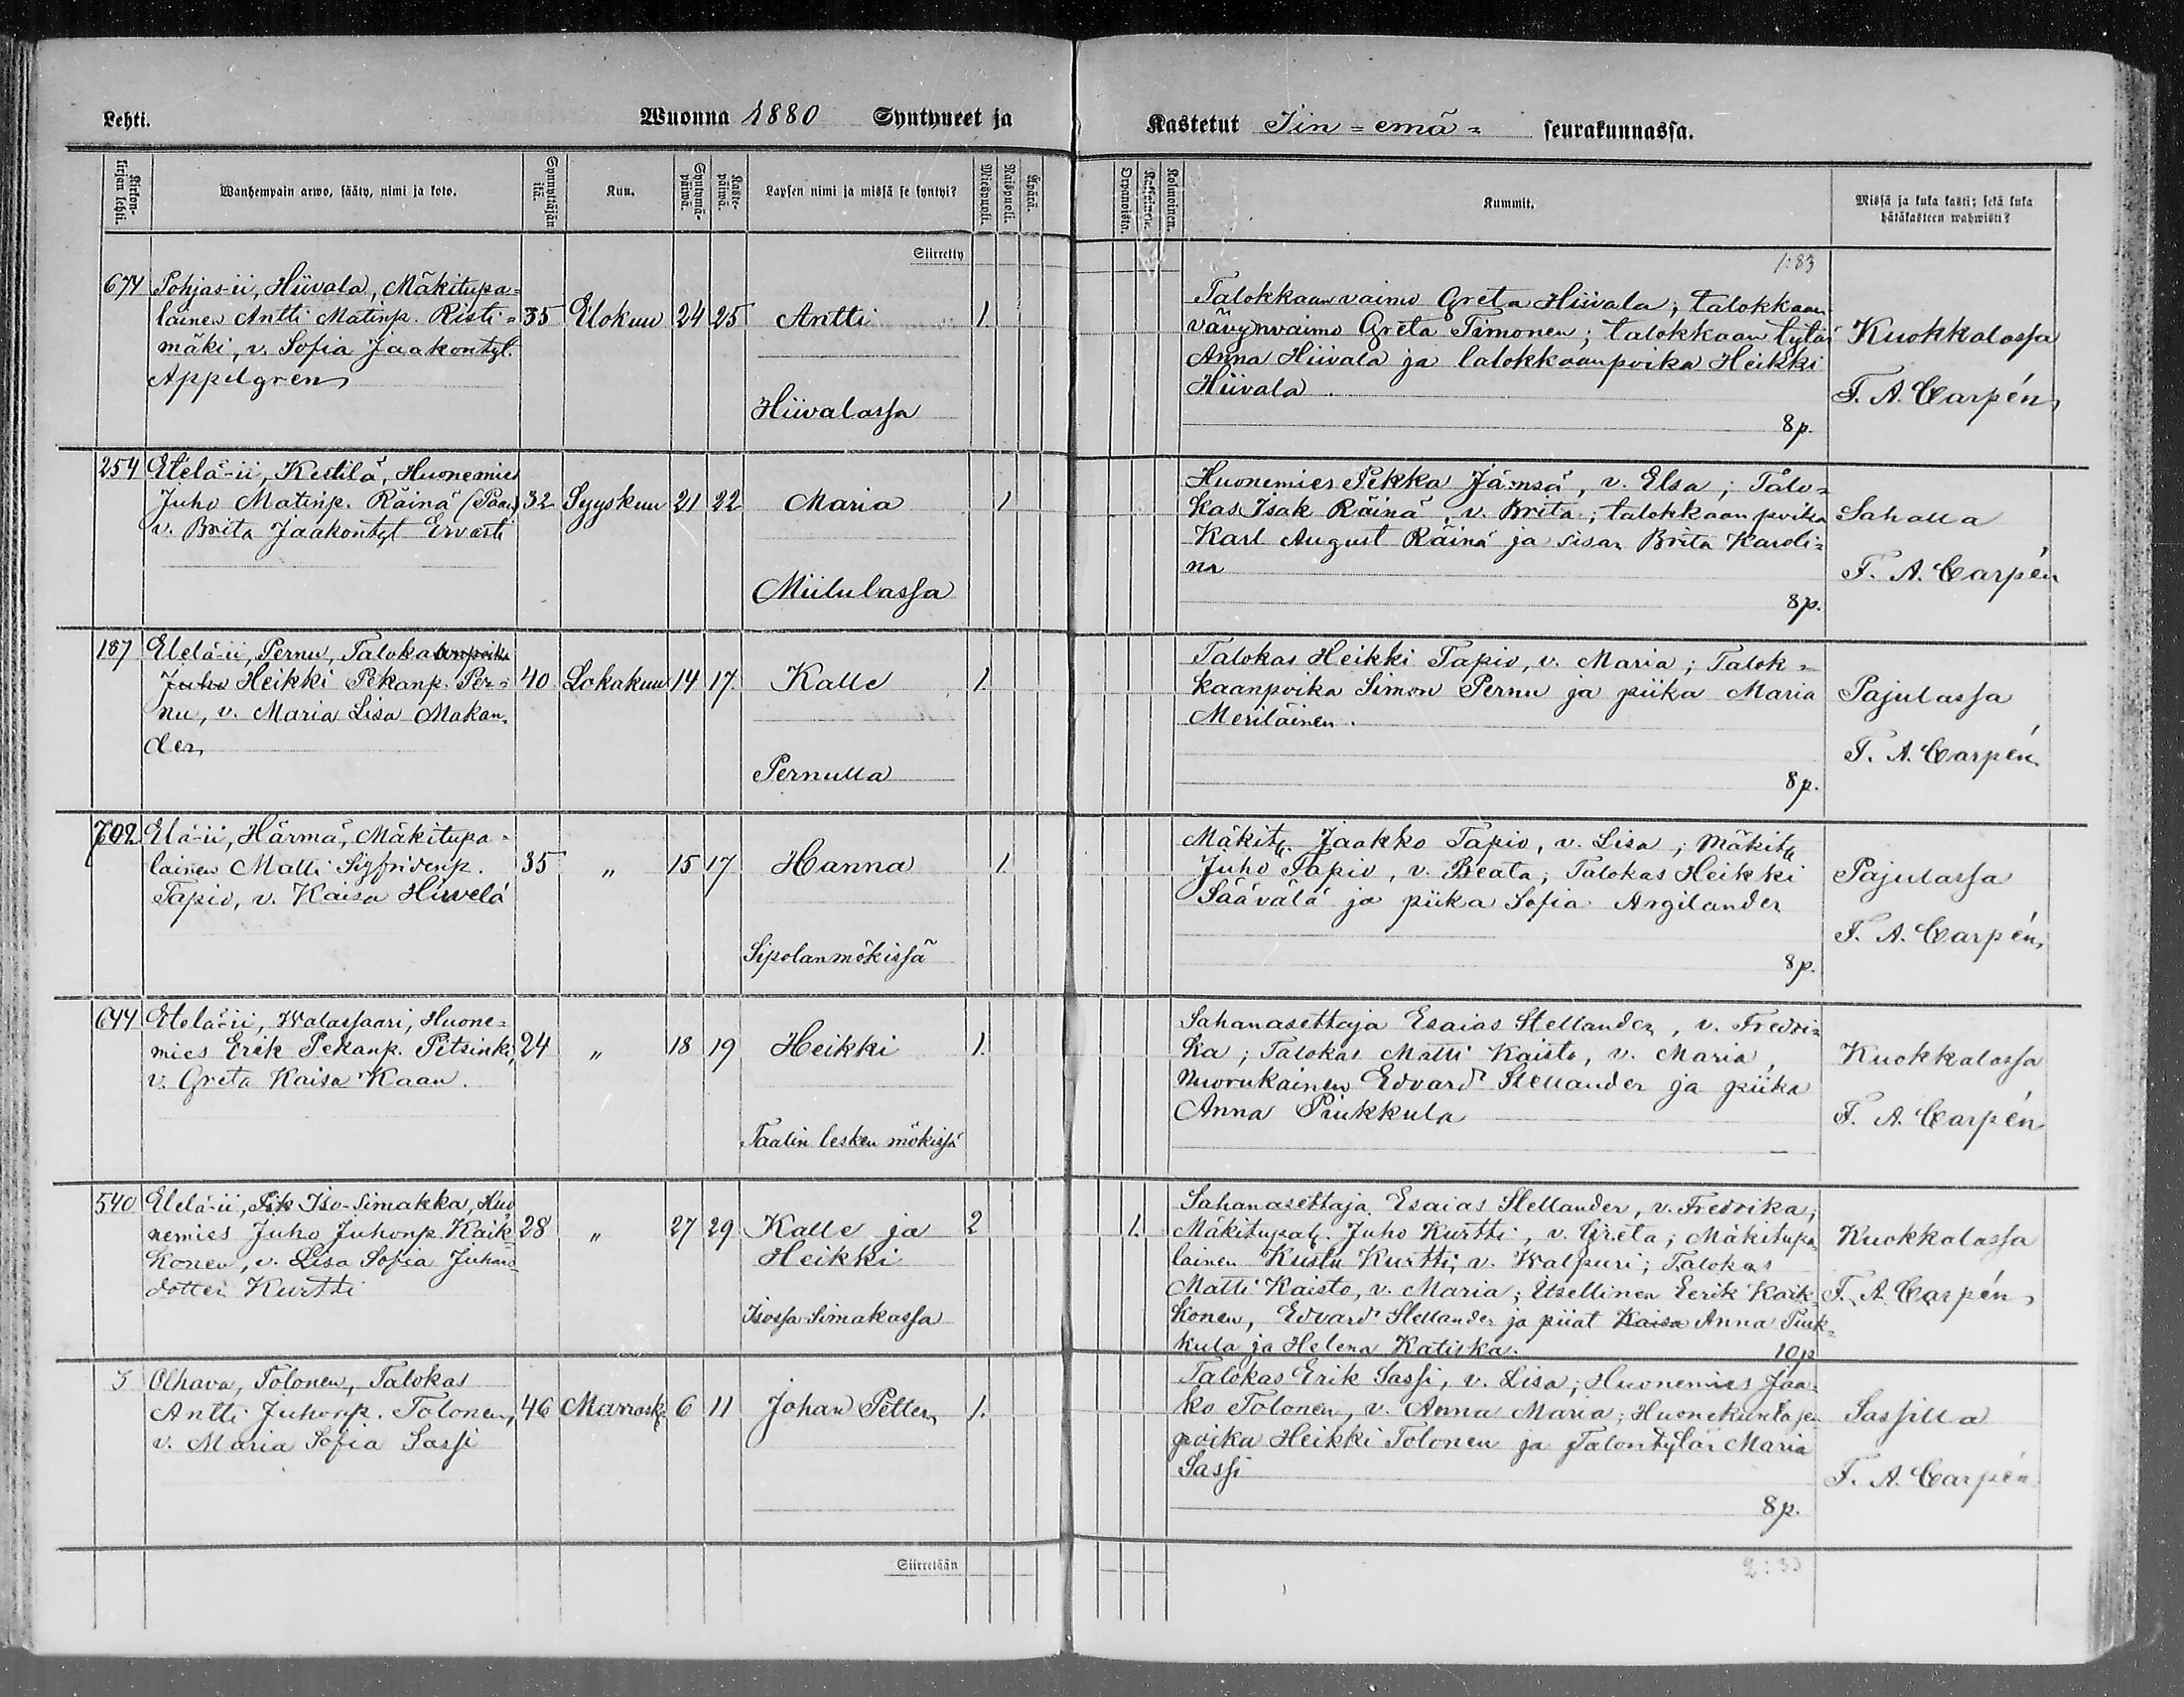 Lehti.
Wuonna 1880 Syntyneet ja
Kastetut Iin=emä= seurakunnassa.
Kirkon-kirjan lehti.
Wanhempain arwo, sääty, nimi ja koto.
Synnyttäjän ikä.
Kuu.
Syntymä-päiwä.
Kaste-päiwä.
Lapsen nimi ja missä se syntyi?
Miespuoli.
Naispuoli.
Äpärä.
Orpanoista.
Kaksoinen.
Kolmoinen.
Kummit.
Missä ja kuka kasti; sekä kuka
hätäkasteen wahwisti?
Siirretty
1:83
674 Pohjas-ii, Hiivala, Mäkitupa=
lainen Antti Matinp. Risti=
mäki, v. Sofia Jaakontyt.
Appelgren
35 Elokuu 24 25 Antti 1.
Hiivalassa
Talokkaan vaimo Greta Hiivala; talokkaan
vävynvaimo Greta Timonen; talokkaan tytär
Anna Hiivala ja talokkaanpoika Heikki
Hiivala.
8p.
Kuokkalassa
F. A. Carpén
254 Etelä-ii, Kestilä, Huonemies
Juho Matinp. Räinä
v. Brita Jaakontyt Ervasti
32 Syyskuu 21 22 Maria 1
Miilulassa
Huonemies Pekka Jämsä, v. Elsa; Talo=
kas Isak Räinä, v. Brita; talokkaan poika
Karl August Räinä ja sisar Brita Karoli=
na
8p.
Sahalla
F. A. Carpén
187 Etelä-ii, Pernu, Talokaanpoika
Juho Heikki Pekanp. Per=
nu, v. Maria Lisa Makan=
der
40 Lokakuu 14 17. Kalle 1.
Pernulla
Talokas Heikki Tapio, v. Maria; Talok=
kaanpoika Simon Pernu ja piika Maria
Meriläinen.
8p.
Pajulassa
F. A. Carpén
702 Elä-ii, Härmä, Mäkitupa=
lainen Matti Sigfridinp.
Tapio, v. Kaisa Hirvelä
35 " 15 17 Hanna 1.
Sipolanmökissä
Mäkit. Jaakko Tapio, v. Lisa; Mäkit.
Juho Tapio, v. Beata; Talokas Heikki
Säävälä ja piika Sofia Argilander
8p.
Pajulassa
F. A. Carpén
644 Etelä-ii, Walassaari, Huone=
mies Erik Pekanp. Pitsinki,
v. Greta Kaisa Kaan.
24 " 18 19 Heikki 1.
Taalin lesken mökissä
Sahanasettaja Esaias Stellander, v. Fredri=
ka; Talokas Matti Kaisto, v. Maria,
Nuorukainen Edvard Stellander ja piika
Anna Pirukkula
Kuokkalassa
F. A. Carpén
540 Etelä-ii, Iso-Simakka, Huo
nemies Juho Juhonp. Kaik=
konen, v. Lisa Sofia Juhan=
dotter Kurtti
28 " 27 29 Kalle ja 2 1.
Heikki
Isossa-Simakassa
Sahanasettaja Esaias Stellander, v. Fredrika;
Mäkitupal. Juho Kurtti, v. Greta; Mäkitupa
lainen Kustu Kurtti, v. Walpuri; Talokas
Matti Kaisto, v. Maria; Itsellinen Eerik Kaik=
konen, Edvard Stellander ja piiat Kaisa Anna Piuk=
kula ja Helena Katiska.
10p
Kuokkalassa
F. A. Carpén
5 Olhava, Tolonen, Talokas
Antti Juhonp. Tolonen,
v. Maria Sofia Sassi
46 Marrask. 6 11 Johan Petter 1.
Talokas Erik Sassi, v. Lisa; Huonemies Jaa=
ko Tolonen, v. Anna Maria; Huonekuntasen
poika Heikki Tolonen ja Talontytär Maria
Sassi
8p.
Sassilla
F. A. Carpén
Siirretään
2:33